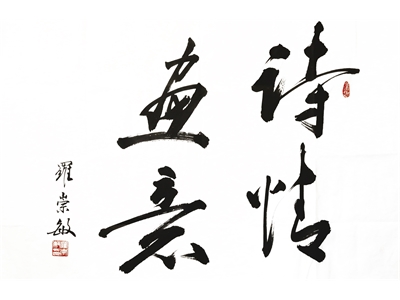 诗情
画意
罗崇敏